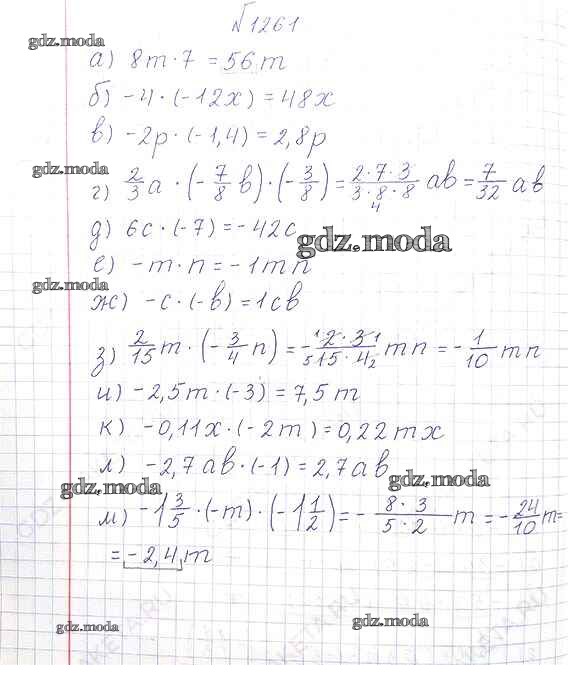 №1261
gdz.moda
а) 8m · 7 = 56m
б) -4 · (-12x) = 48x
в) -2p · (-1,4) = 2,8p
gdz.moda
г) 2/3 a · (-7/8 b) · (-3/8) = 2·7·3/3·8·8 4 ab = 7/32 ab
д) 6c · (-7) = -42c
gdz.moda
е) -m · n = -1mn
gdz.moda
ж) -c · (-b) = 1cb
з) 2/15 m · (-3/4 n) = - 1 2·3 1/5 15·4 2 mn = -1/10 mn
и) -2,5m · (-3) = 7,5m
к) -0,11x · (-2m) = 0,22mx
л) -2,7ab · (-1) = 2,7ab
gdz.moda
gdz.moda
м) -1 3/5 · (-m) · (-1 1/2) = - 8·3/5·2 m = -24/10 m =
= -2,4m
gdz.moda
gdz.moda